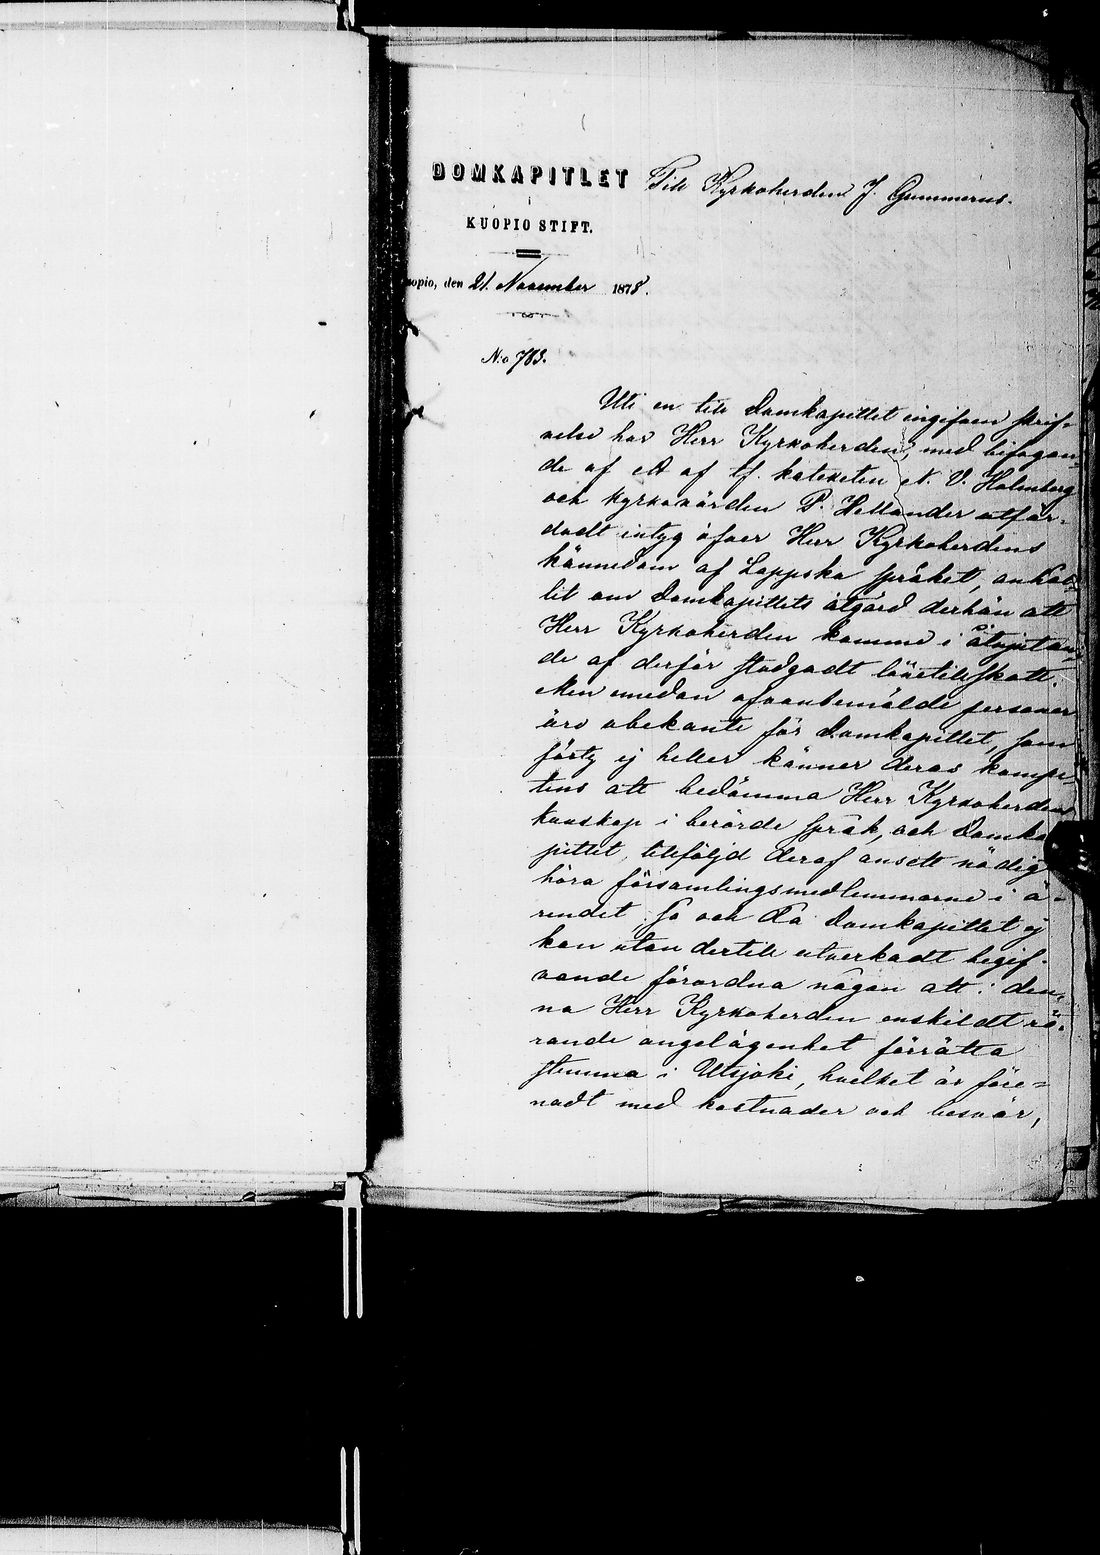 DOMKAPITLET
i
KUOPIO STIFT.
Till Kyrkoherden J. Gummerus.
uopio, den 21 November 1878.
N:o 783.
Uti en till Domkapitlet ingifven skrif-
velse har Herr Kyrkoherden, med bifogan-
de af ett af tf. kateketen N. V. Holmberg
och kyrkovärden P. Hellander utfär-
dadt intyg öfver Herr Kyrkoherdens
kännedom af Lappska språket, anhål-
lit om Domkapitlets åtgärd derhän att
Herr Kyrkoherden komme i åtnjutan-
de af derför stadgadt lönetillskott.
Men emedan ofvanbemälde personer
äro obekante för Domkapitlet, som
förty ej heller känner deras kompe-
tens att bedömma Herr Kyrkoherdens
kunskap i berörde språk, och Domka-
pitlet, tillföljd deraf ansett nödig
höra församlingsmedlemmarne i ä-
rendet så och då Domkapitlet ej
kan utan dertill utverkadt begif-
vande förordna någon att i den-
na Herr Kyrkoherden enskildt rö-
rande angelägenhet förrätta
stämma i Utsjoki, hvilket är före-
nadt med kostnader och besvär,